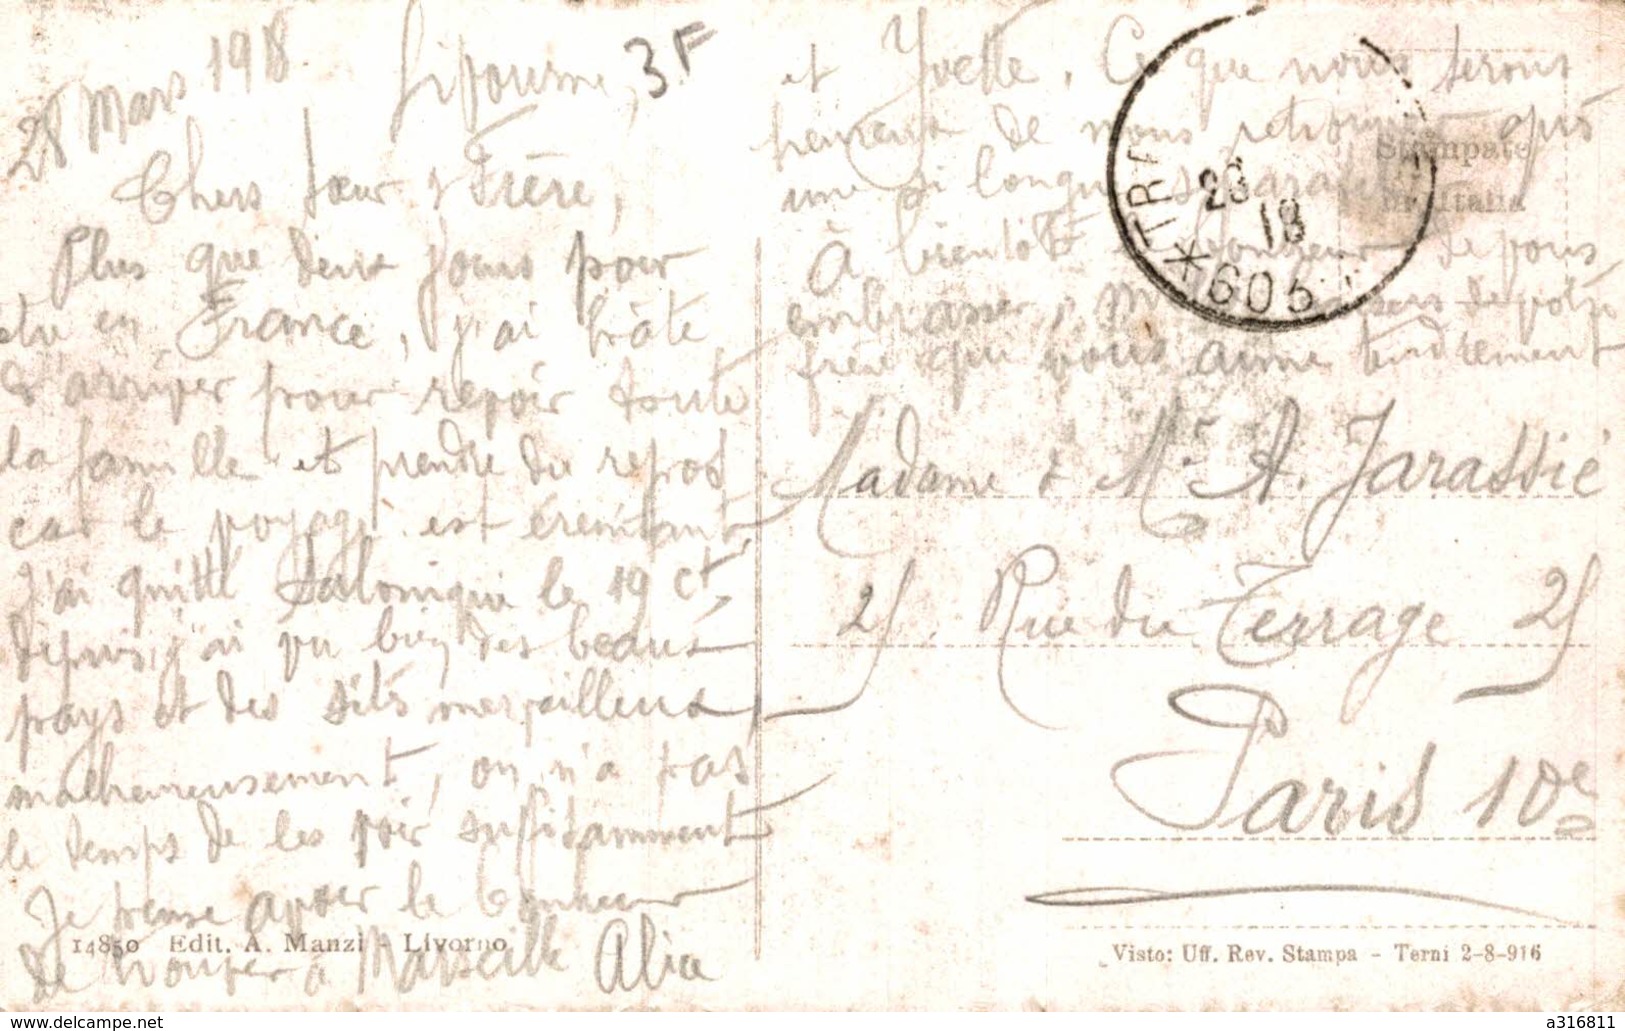 28 Mars 1918 Livourne, 3F
Chers Sœur & Frère,
Plus que deux jours pour
être en France, j'ai hâte
d'arriver pour revoir toute
la famille et prendre du repos
car le voyage est éreintant
J'ai quitté Salonique le 19 ct,
depuis j'ai vu bien des beaux
pays et des sites merveilleux
malheureusement, on n'a pas
le temps de les voir suffisamment
Je pense avoir le bonheur
de trouver à Marseille Alice
et Yvette. Ce que nous serons
heureux de nous retrouver après
une si longue séparation
À bientôt bonheur de vous
embrasser, de votre
frère qui vous aime tendrement
Stampato
in Italia
TRE
29
18
*603
Madame & Mr A. Jarassié
25 Rue du Terrage 25
Paris 10e
14850 Edit. A. Manzi - Livorno
Visto: Uff. Rev. Stampa - Terni 2-8-916
a316811